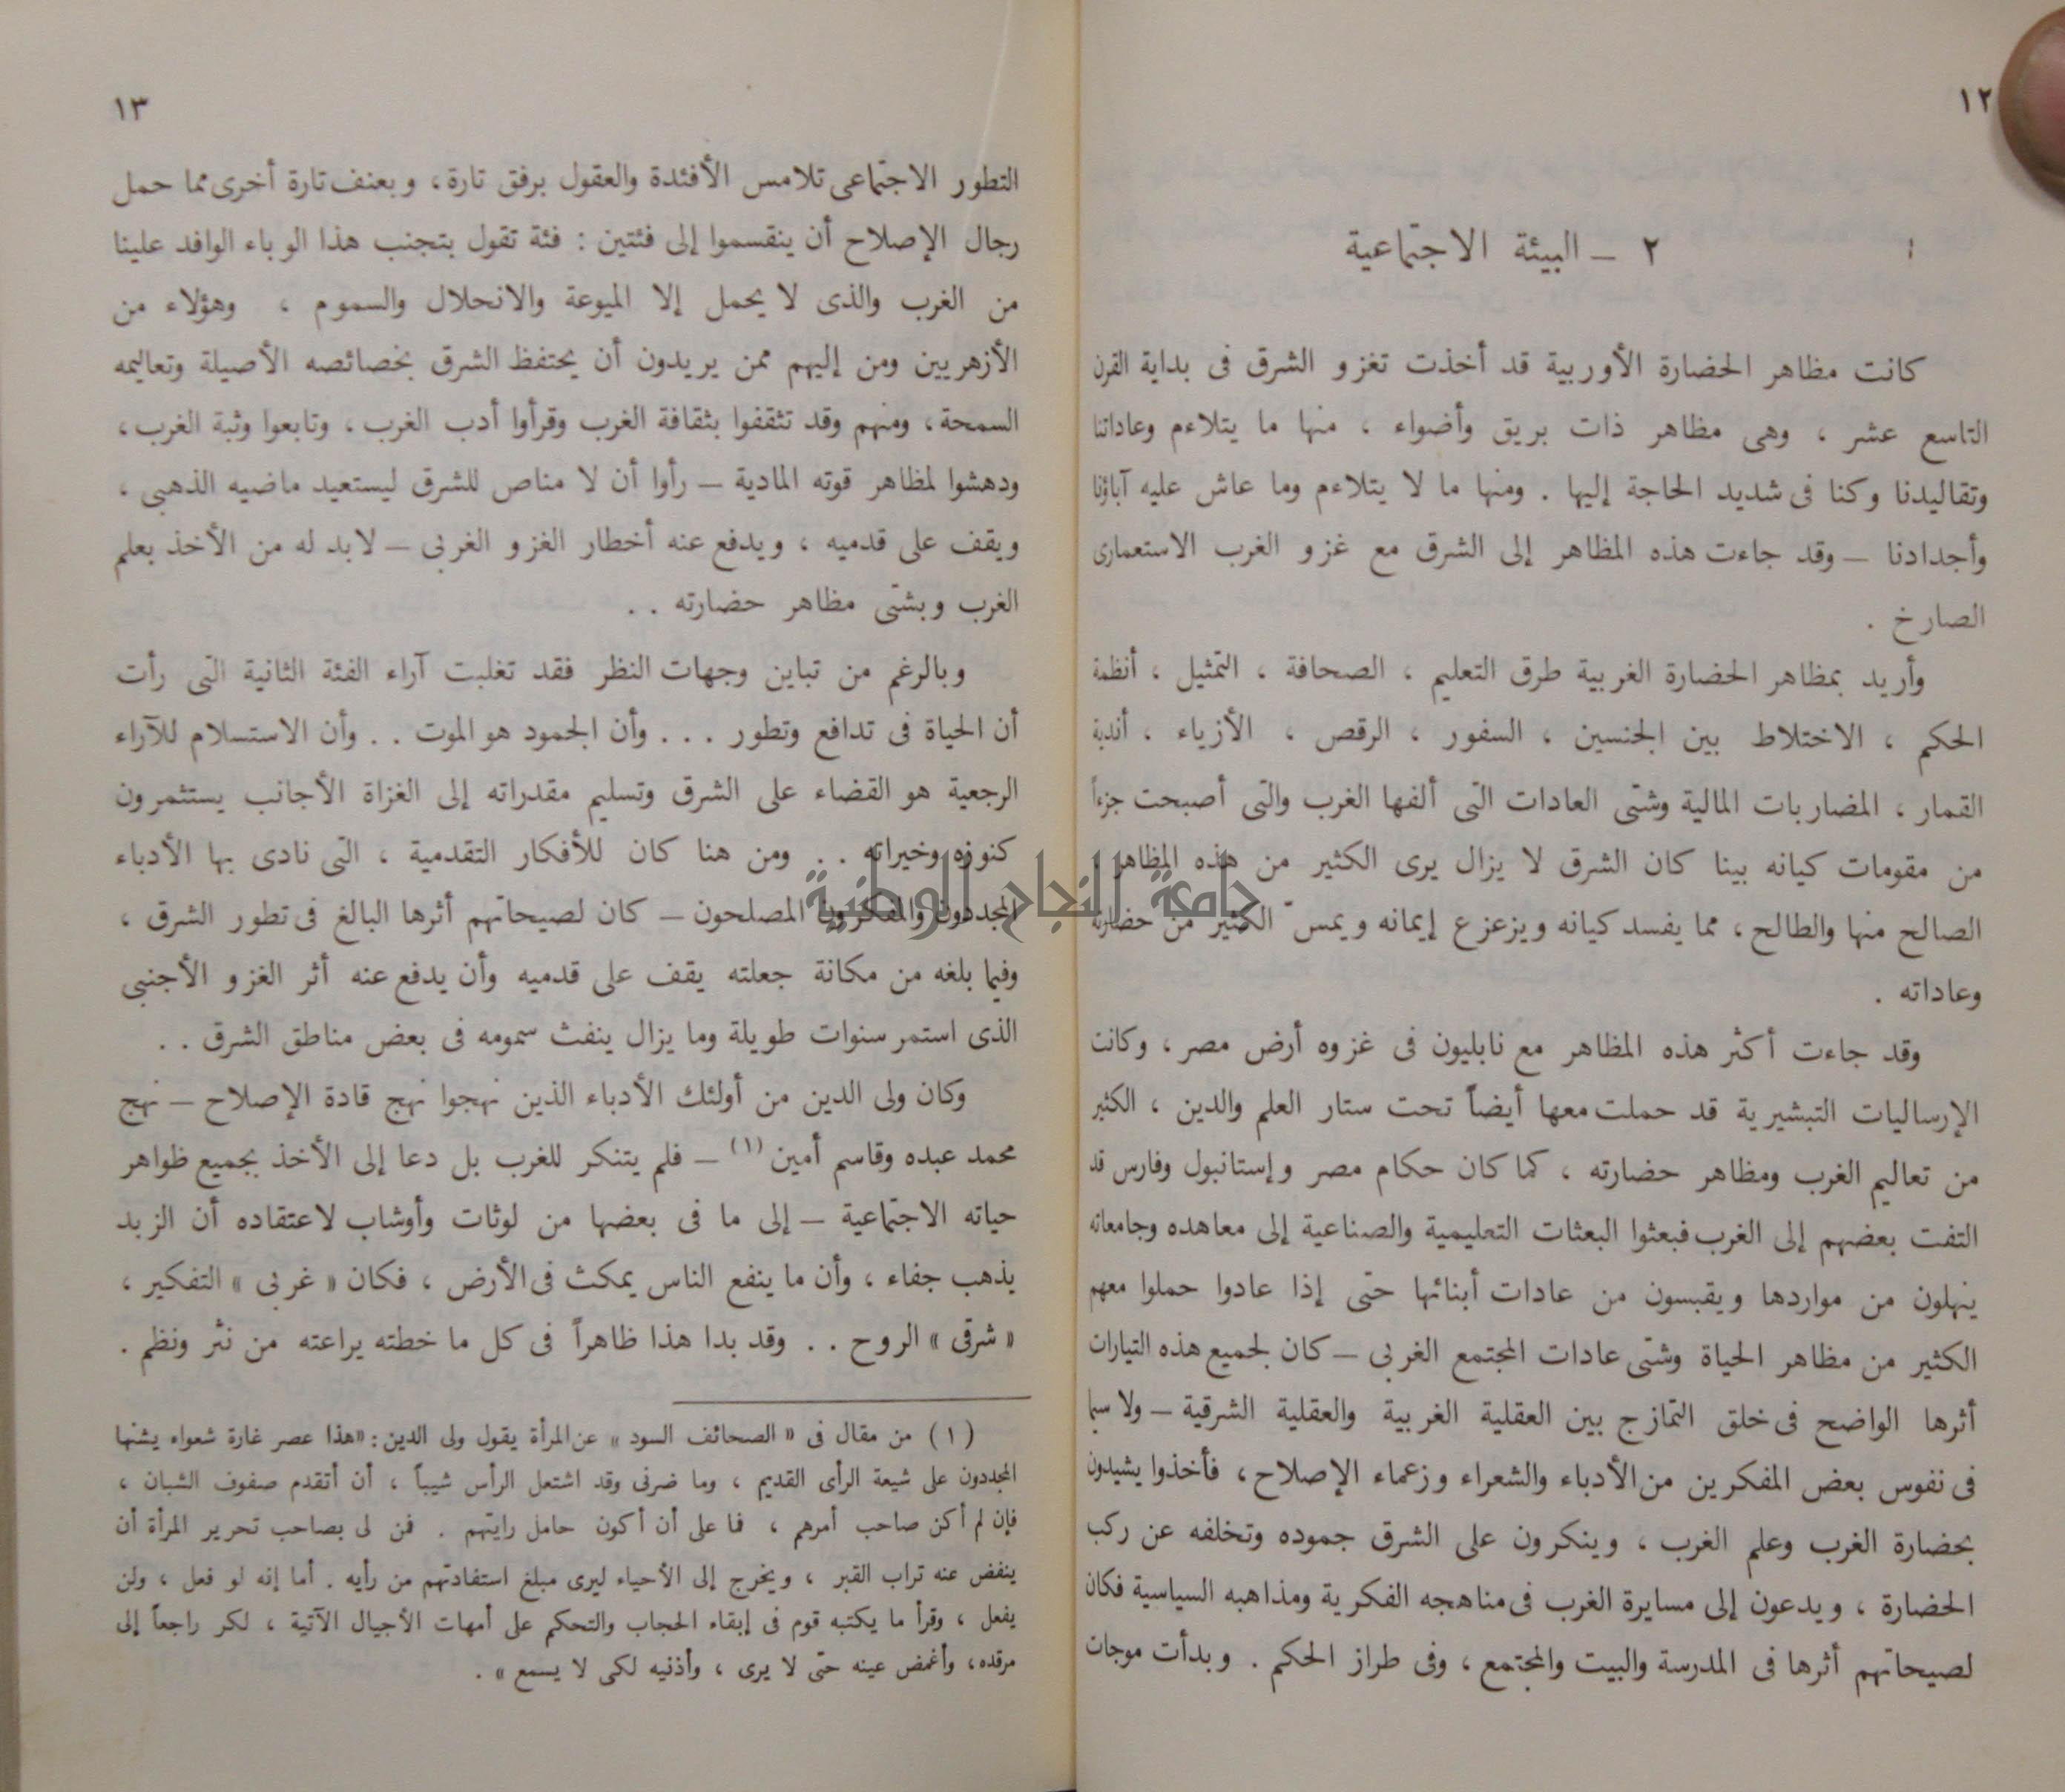 ١٢
٢ – البيئة الاجتماعية
كانت مظاهر الحضارة الأوربية قد أخذت تغزو الشرق فى بداية القرن
التاسع عشر ، وهى مظاهر ذات بريق وأضواء ، منها ما يتلاءم وعاداتنا
وتقاليدنا وكنا فى شديد الحاجة إليها . ومنها ما لا يتلاءم وما عاش عليه آباؤنا
وأجدادنا – وقد جاءت هذه المظاهر إلى الشرق مع غزو الغرب الاستعمارى
الصارخ .
وأريد بمظاهر الحضارة الغربية طرق التعليم ، الصحافة ، التمثيل ، أنظمة
الحكم ، الاختلاط بين الجنسين ، السفور ، الرقص ، الأزياء ، أندية
القمار ، المضاربات المالية وشتى العادات التى ألفها الغرب والتى أصبحت جزءاً
من مقومات كيانه بينا كان الشرق لا يزال يرى الكثير من هذه المظاهر ،
الصالح منها والطالح ، مما يفسد كيانه ويزعزع إيمانه ويمسّ الكثير من حضارته
وعاداته .
وقد جاءت أكثر هذه المظاهر مع نابليون فى غزوه أرض مصر ، وكانت
الإرساليات التبشيرية قد حملت معها أيضاً تحت ستار العلم والدين ، الكثير
من تعاليم الغرب ومظاهر حضارته ، كما كان حكام مصر وإستانبول وفارس قد
التفت بعضهم إلى الغرب فبعثوا البعثات التعليمية والصناعية إلى معاهده وجامعاته
ينهلون من مواردها ويقبسون من عادات أبنائها حتى إذا عادوا حملوا معهم
الكثير من مظاهر الحياة وشتى عادات المجتمع الغربى – كان لجميع هذه التيارات
أثرها الواضح فى خلق التمازج بين العقلية الغربية والعقلية الشرقية – ولا سيما
فى نفوس بعض المفكرين من الأدباء والشعراء وزعماء الإصلاح ، فأخذوا يشيدون
بحضارة الغرب وعلم الغرب ، وينكرون على الشرق جموده وتخلفه عن ركب
الحضارة ، ويدعون إلى مسايرة الغرب فى مناهجه الفكرية ومذاهبه السياسية فكان
لصيحاتهم أثرها فى المدرسة والبيت والمجتمع ، وفى طراز الحكم . وبدأت موجات
١٣
التطور الاجتماعى تلامس الأفئدة والعقول برفق تارة ، وبعنف تارة أخرى مما حمل
رجال الإصلاح أن ينقسموا إلى فئتين : فئة تقول بتجنب هذا الوباء الوافد علينا
من الغرب والذى لا يحمل إلا الميوعة والانحلال والسموم ، وهؤلاء من
الأزهريين ومن إليهم ممن يريدون أن يحتفظ الشرق بخصائصه الأصيلة وتعاليمه
السمحة ، ومنهم وقد تثقفوا بثقافة الغرب وقرأوا أدب الغرب ، وتابعوا وثبة الغرب ،
ودهشوا لمظاهر قوته المادية – رأوا أن لا مناص للشرق ليستعيد ماضيه الذهبى ،
ويقف على قدميه ، ويدفع عنه أخطار الغزو الغربى – لابد له من الأخذ بعلم
الغرب وبشتى مظاهر حضارته . .
وبالرغم من تباين وجهات النظر فقد تغلبت آراء الفئة الثانية التى رأت
أن الحياة فى تدافع وتطور . . . وأن الجمود هو الموت . . وأن الاستسلام للآراء
الرجعية هو القضاء على الشرق وتسليم مقدراته إلى الغزاة الأجانب يستثمرون
كنوزه وخيراته . . ومن هنا كان للأفكار التقدمية ، التى نادى بها الأدباء
المجددون والمفكرون المصلحون – كان لصيحاتهم أثرها البالغ فى تطور الشرق ،
وفيما بلغه من مكانة جعلته يقف على قدميه وأن يدفع عنه أثر الغزو الأجنبى
الذى استمر سنوات طويلة وما يزال ينفث سمومه فى بعض مناطق الشرق . .
وكان ولى الدين من أولئك الأدباء الذين نهجوا نهج قادة الإصلاح – نهج
محمد عبده وقاسم أمين (١) – فلم يتنكر للغرب بل دعا إلى الأخذ بجميع ظواهر
حياته الاجتماعية – إلى ما فى بعضها من لوثات وأوشاب لاعتقاده أن الزبد
يذهب جفاء ، وأن ما ينفع الناس يمكث فى الأرض ، فكان « غربى » التفكير ،
« شرقى » الروح . . وقد بدا هذا ظاهراً فى كل ما خطته يراعته من نثر ونظم .
(١) من مقال فى « الصحائف السود » عن المرأة يقول ولى الدين : «هذا عصر غارة شعواء يشنها
المجددون على شيعة الرأى القديم ، وما ضرنى وقد اشتعل الرأس شيباً ، أن أتقدم صفوف الشبان ،
فإن لم أكن صاحب أمرهم ، فما على أن أكون حامل رايتهم . فمن لى بصاحب تحرير المرأة أن
ينفض عنه تراب القبر ، ويخرج إلى الأحياء ليرى مبلغ استفادتهم من رأيه . أما إنه لو فعل ، ولن
يفعل ، وقرأ ما يكتبه قوم فى إبقاء الحجاب والتحكم على أمهات الأجيال الآتية ، لكر راجعاً إلى
مرقده ، وأغمض عينه حتى لا يرى ، وأذنيه لكى لا يسمع » .
جامعة النجاح الوطنية